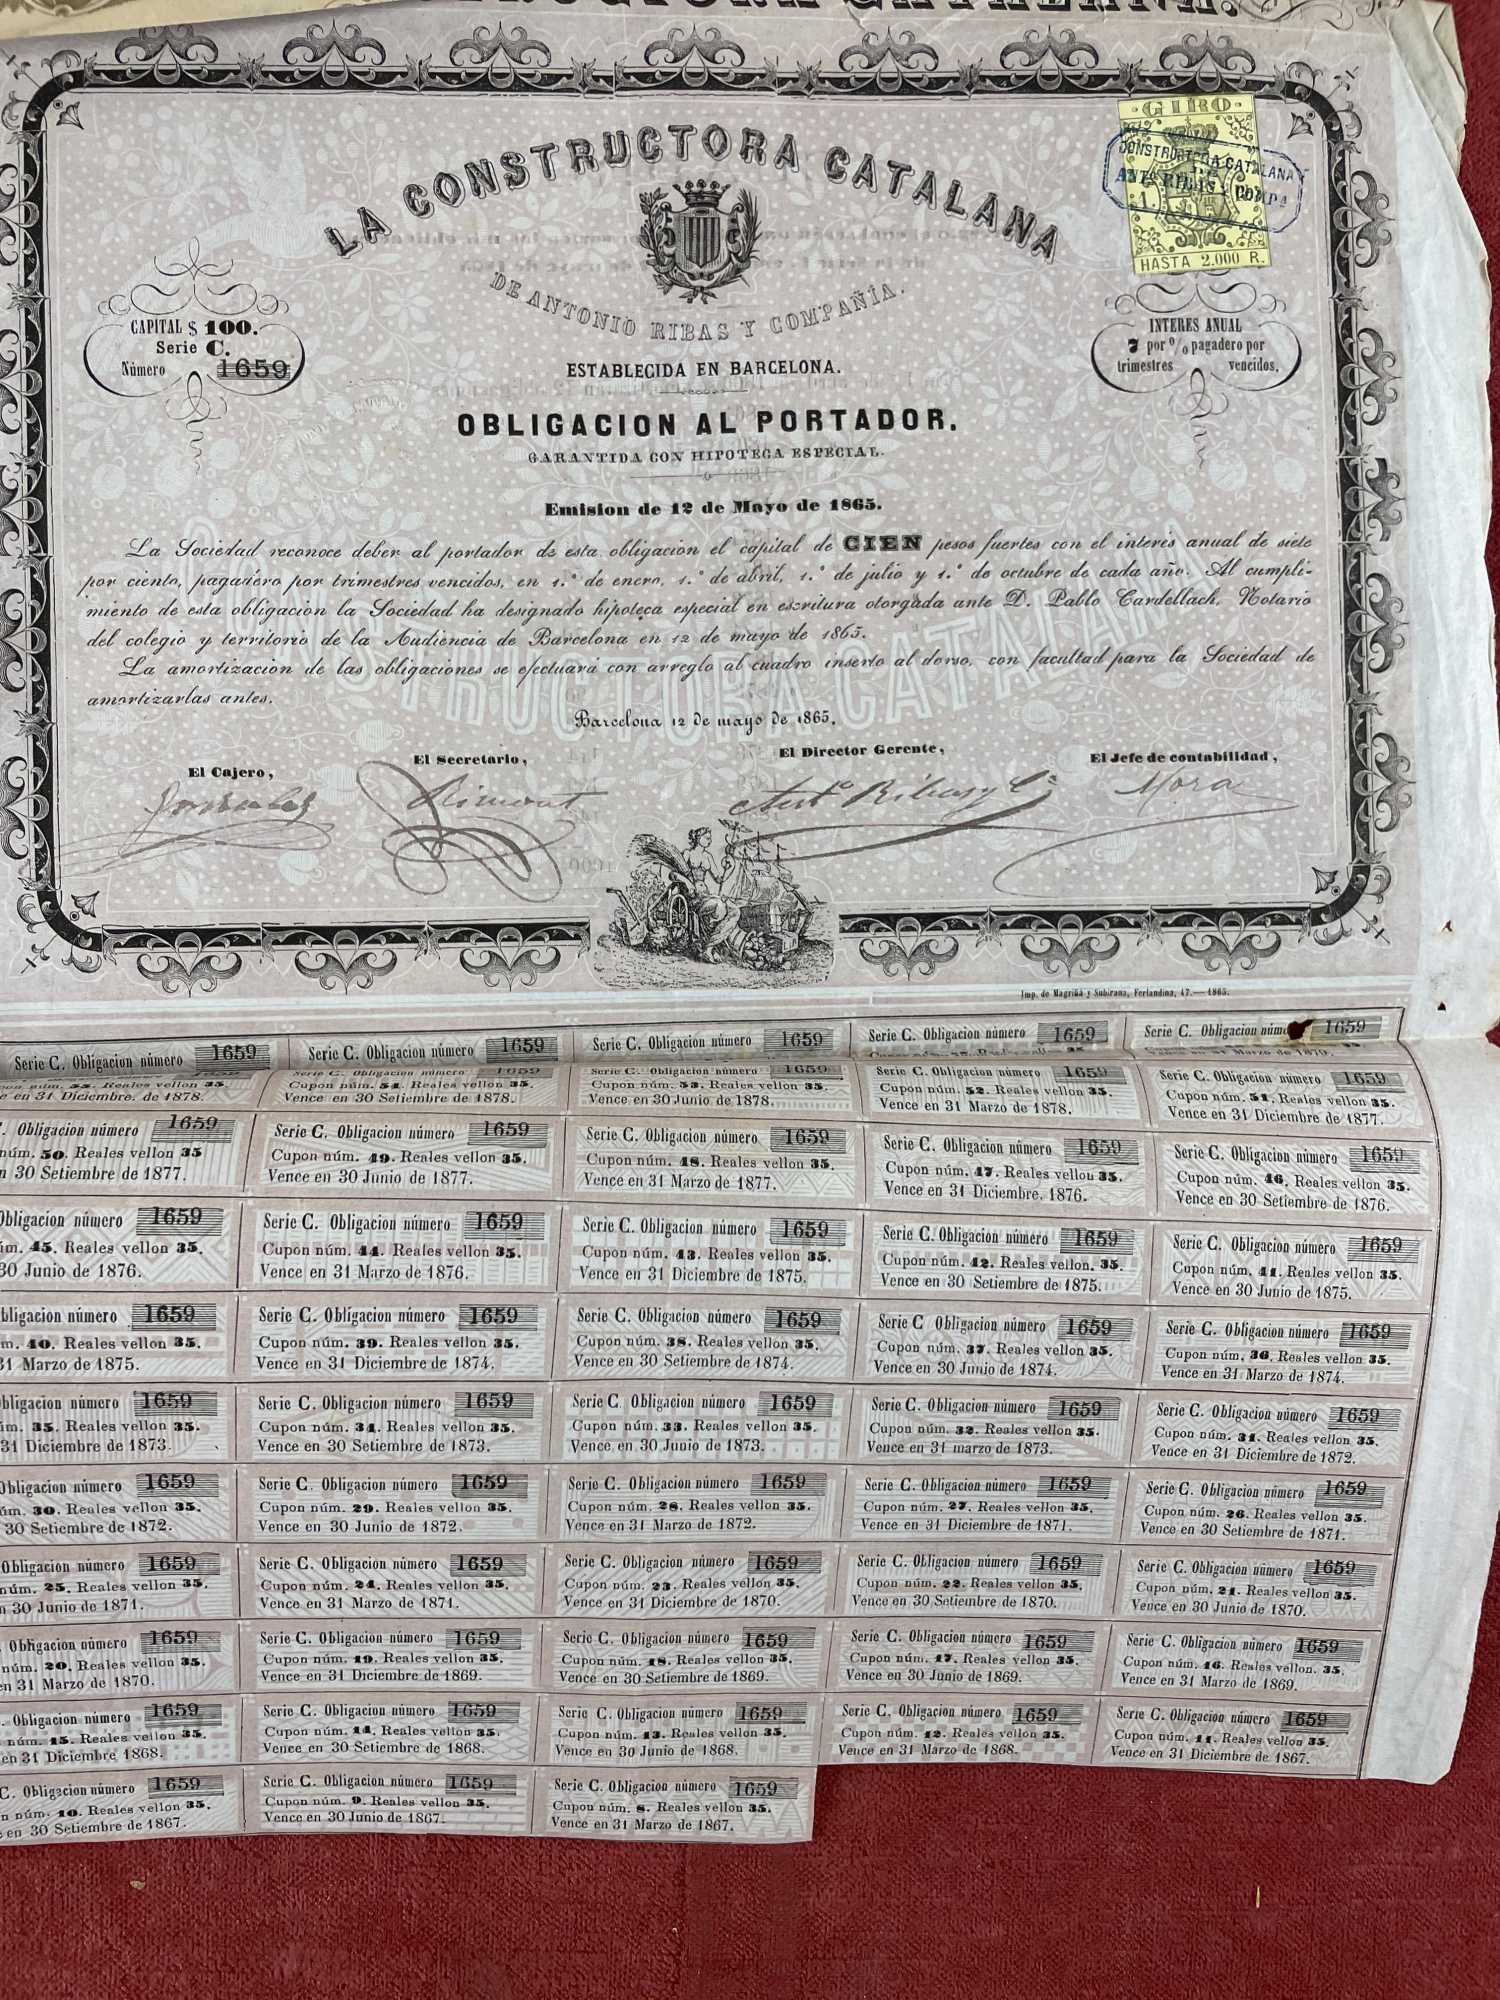 LA CONSTRUCTORA CATALANA
DE ANTONIO RIBAS Y COMPAÑÍA.
ESTABLECIDA EN BARCELONA.
CAPITAL $ 100.
Serie C.
Número 1659
GIRO
CONSTRUCTORA CATALANA
HASTA 2.000 R.
INTERES ANUAL
7 por % pagadero por
trimestres vencidos.
OBLIGACION AL PORTADOR.
GARANTIDA CON HIPOTECA ESPECIAL.
Emision de 12 de Mayo de 1865.
La Sociedad reconoce deber al portador de esta obligacion el capital de CIEN pesos fuertes con el interés anual de siete
por ciento, pagadero por trimestres vencidos, en 1.° de enero, 1.° de abril, 1.° de julio y 1.° de octubre de cada año. Al cumpli-
miento de esta obligacion la Sociedad ha designado hipoteca especial en escritura otorgada ante D. Pablo Cardellach, Notario
del colegio y territorio de la Audiencia de Barcelona en 12 de mayo de 1865.
La amortizacion de las obligaciones se efectuará con arreglo al cuadro inserto al dorso, con facultad para la Sociedad de
amortizarlas antes.
CONSTRUCTORA CATALANA
Barcelona 12 de mayo de 1865.
El Cajero,
El Secretario,
El Director Gerente,
El Jefe de contabilidad,
Antº Ribas y Cª
Mora
Imp. de Magriñá y Subirana, Ferlandina, 47.—1865.
Serie C. Obligacion número 1659
Serie C. Obligacion número 1659
Serie C. Obligacion número 1659
Serie C. Obligacion número 1659
Serie C. Obligacion núme 1659
núm. 55. Reales vellon 35.
e en 31 Diciembre. de 1878.
1659
Cupon núm. 54. Reales vellon 35.
Vence en 30 Setiembre de 1878.
Serie C. Obligacion número 1659
Cupon núm. 53. Reales vellon 35.
Vence en 30 Junio de 1878.
Serie C. Obligacion número 1659
Cupon núm. 52. Reales vellon 35.
Vence en 31 Marzo de 1878.
Serie C. Obligacion número 1659
Cupon núm. 51. Reales vellon 35.
Vence en 31 Diciembre de 1877.
. Obligacion número 1659
núm. 50. Reales vellon 35
n 30 Setiembre de 1877.
Serie C. Obligacion número 1659
Cupon núm. 49. Reales vellon 35.
Vence en 30 Junio de 1877.
Serie C. Obligacion número 1659
Cupon núm. 48. Reales vellon 35.
Vence en 31 Marzo de 1877.
Serie C. Obligacion número 1659
Cupon núm. 47. Reales vellon 35.
Vence en 31 Diciembre. 1876.
Serie C. Obligacion número 1659
Cupon núm. 46. Reales vellon 35.
Vence en 30 Setiembre de 1876.
Obligacion número 1659
úm. 45. Reales vellon 35.
30 Junio de 1876.
Serie C. Obligacion número 1659
Cupon núm. 44. Reales vellon 35.
Vence en 31 Marzo de 1876.
Serie C. Obligacion número 1659
Cupon núm. 43. Reales vellon 35.
Vence en 31 Diciembre de 1875.
Serie C. Obligacion número 1659
Cupon núm. 42. Reales vellon. 35.
Vence en 30 Setiembre de 1875.
Serie C. Obligacion número 1659
Cupon núm. 41. Reales vellon 35.
Vence en 30 Junio de 1875.
bligacion número 1659
m. 40. Reales vellon 35.
31 Marzo de 1875.
Serie C. Obligacion número 1659
Cupon núm. 39. Reales vellon 35.
Vence en 31 Diciembre de 1874.
Serie C. Obligacion número 1659
Cupon núm. 38. Reales vellon 35.
Vence en 30 Setiembre de 1874.
Serie C Obligacion número 1659
Cupon núm. 37. Reales vellon 35.
Vence en 30 Junio de 1874.
Serie C. Obligacion número 1659
Cupon núm. 36. Reales vellon 35.
Vence en 31 Marzo de 1874.
bligacion número 1659
úm. 35. Reales vellon 35.
31 Diciembre de 1873.
Serie C. Obligacion número 1659
Cupon núm. 34. Reales vellon 35.
Vence en 30 Setiembre de 1873.
Serie C. Obligacion número 1659
Cupon núm. 33. Reales vellon 35.
Vence en 30 Junio de 1873.
Serie C. Obligacion número 1659
Cupon núm. 32. Reales vellon 35.
Vence en 31 marzo de 1873.
Serie C. Obligacion número 1659
Cupon núm. 31. Reales vellon 35.
Vence en 31 Diciembre de 1872.
bligacion número 1659
úm. 30. Reales vellon 35.
30 Setiembre de 1872.
Serie C. Obligacion número 1659
Cupon núm. 29. Reales vellon 35.
Vence en 30 Junio de 1872.
Serie C. Obligacion número 1659
Cupon núm. 28. Reales vellon 35.
Vence en 31 Marzo de 1872.
Serie C. Obligacion número 1659
Cupon núm. 27. Reales vellon 35.
Vence en 31 Diciembre de 1871.
Serie C. Obligacion número 1659
Cupon núm. 26. Reales vellon 35.
Vence en 30 Setiembre de 1871.
Obligacion número 1659
núm. 25. Reales vellon 35.
n 30 Junio de 1871.
Serie C. Obligacion número 1659
Cupon núm. 24. Reales vellon 35.
Vence en 31 Marzo de 1871.
Serie C. Obligacion número 1659
Cupon núm. 23. Reales vellon 35.
Vence en 31 Diciembre de 1870.
Serie C. Obligacion número 1659
Cupon núm. 22. Reales vellon 35.
Vence en 30 Setiembre de 1870.
Serie C. Obligacion número 1659
Cupon núm. 21. Reales vellon 35.
Vence en 30 Junio de 1870.
. Obligacion número 1659
núm. 20. Reales vellon 35.
en 31 Marzo de 1870.
Serie C. Obligacion número 1659
Cupon núm. 19. Reales vellon 35.
Vence en 31 Diciembre de 1869.
Serie C. Obligacion número 1659
Cupon núm. 18. Reales vellon 35.
Vence en 30 Setiembre de 1869.
Serie C. Obligacion número 1659
Cupon núm. 17. Reales vellon 35.
Vence en 30 Junio de 1869.
Serie C. Obligacion número 1659
Cupon núm. 16. Reales vellon. 35.
Vence en 31 Marzo de 1869.
. Obligacion número 1659
núm. 15. Reales vellon 35.
en 31 Diciembre de 1868.
Serie C. Obligacion número 1659
Cupon núm. 14. Reales vellon 35.
Vence en 30 Setiembre de 1868.
Serie C. Obligacion número 1659
Cupon núm. 13. Reales vellon 35.
Vence en 30 Junio de 1868.
Serie C. Obligacion número 1659
Cupon núm. 12. Reales vellon 35.
Vence en 31 Marzo de 1868.
Serie C. Obligacion número 1659
Cupon núm. 11. Reales vellon 35.
Vence en 31 Diciembre de 1867.
C. Obligacion número 1659
n núm. 10. Reales vellon 35.
e en 30 Setiembre de 1867.
Serie C. Obligacion número 1659
Cupon núm. 9. Reales vellon 35.
Vence en 30 Junio de 1867.
Serie C. Obligacion número 1659
Cupon núm. 8. Reales vellon 35.
Vence en 31 Marzo de 1867.